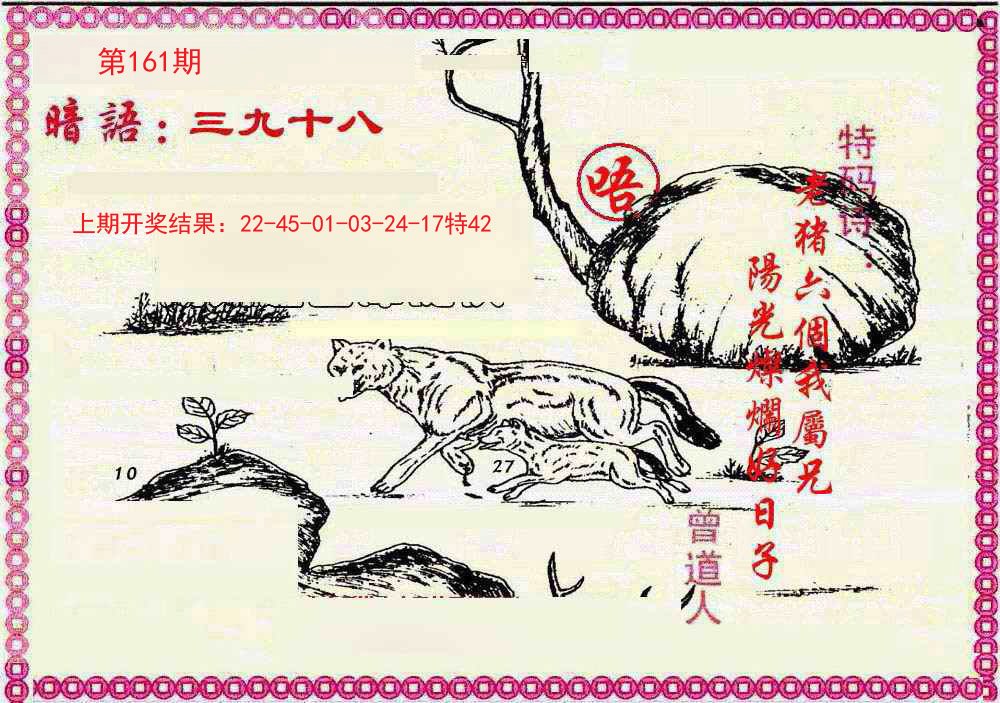 第161期
暗語：三九十八
上期开奖结果：22-45-01-03-24-17特42
唔
特码诗：
老猪六個我屬兄
陽光燦爛好日子
曾道人
10
27